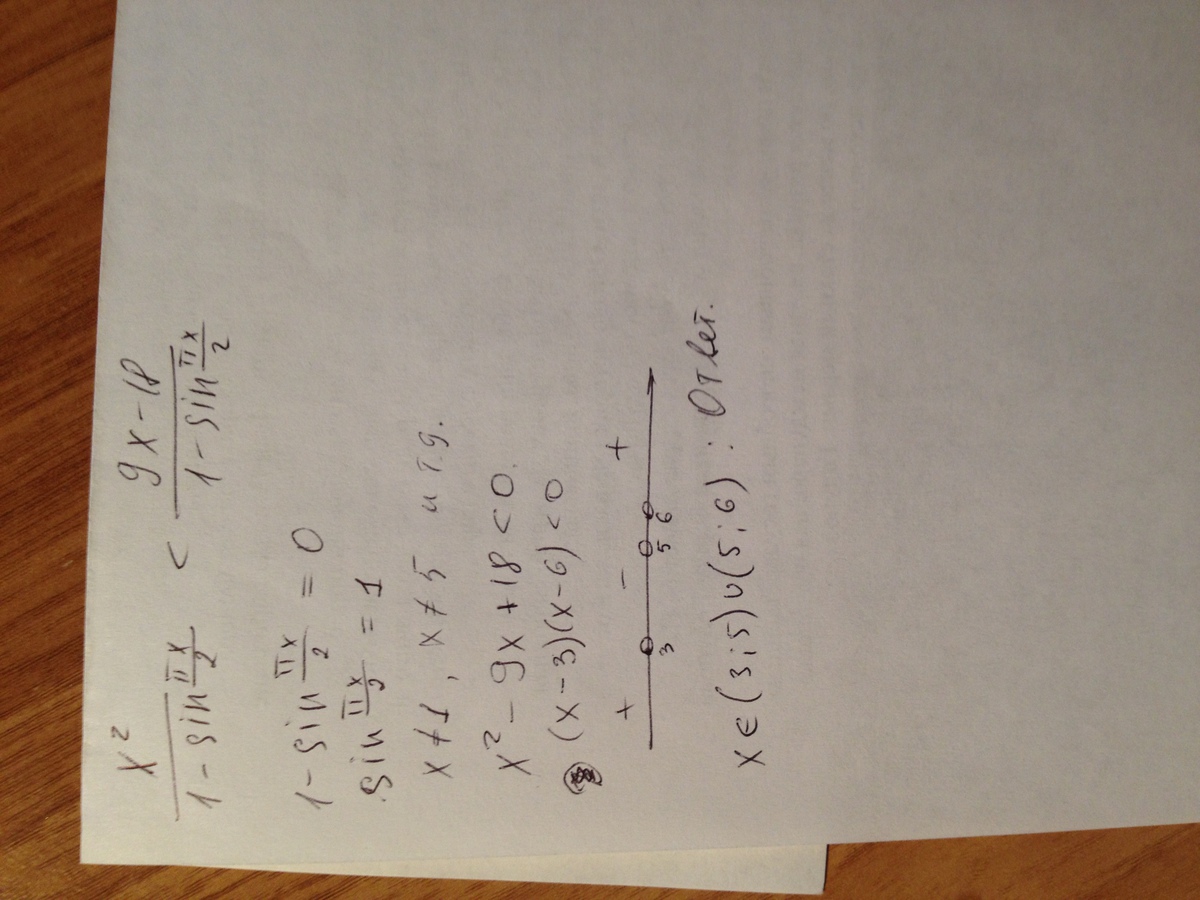 x² / (1 - sin πx/2) < (9x - 18) / (1 - sin πx/2)
1 - sin πx/2 = 0
sin πx/2 = 1
x ≠ 1, x ≠ 5 и т.д.
x² - 9x + 18 < 0.
(x - 3)(x - 6) < 0
+ - +
3 5 6
x ∈ (3; 5) ∪ (5; 6) : Ответ.